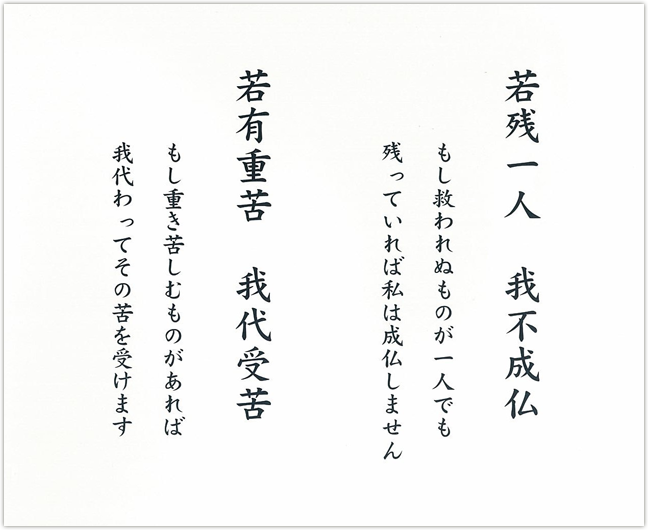 若残一人　我不成仏
もし救われぬものが一人でも
残っていれば私は成仏しません
若有重苦　我代受苦
もし重き苦しむものがあれば
我代わってその苦を受けます